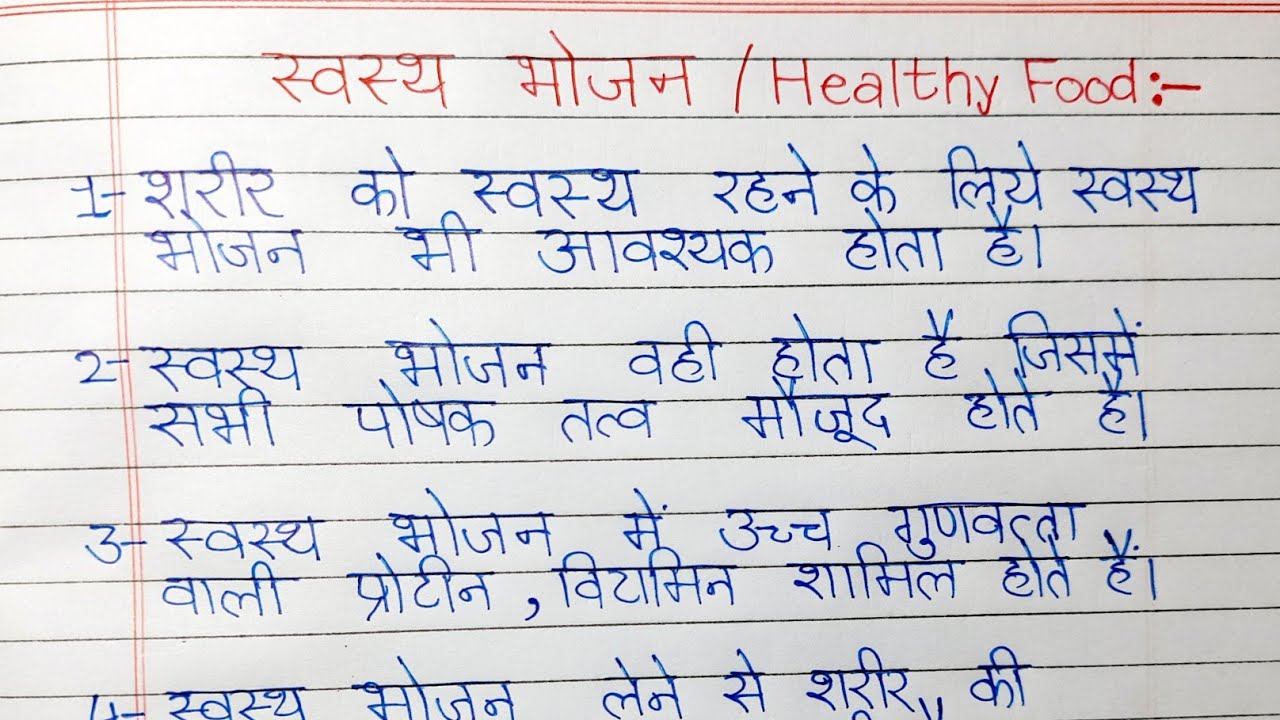 स्वस्थ भोजन / Healthy Food:-
1- शरीर को स्वस्थ रहने के लिये स्वस्थ
भोजन भी आवश्यक होता है।
2- स्वस्थ भोजन वही होता है जिसमें
सभी पोषक तत्व मौजूद होते है।
3- स्वस्थ भोजन में उच्च गुणवत्ता
वाली प्रोटीन , विटामिन शामिल होते हैं।
4- स्वस्थ भोजन लेने से शरीर की